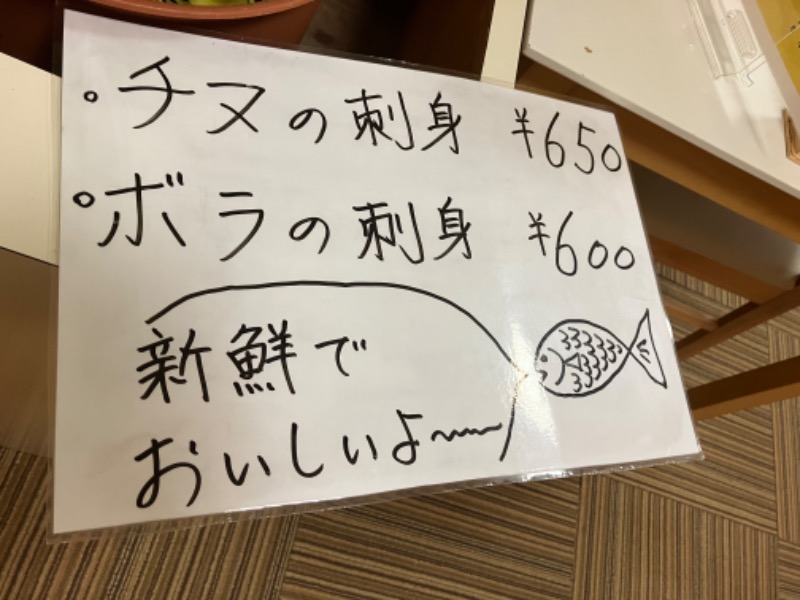 ・チヌの刺身 ¥650
・ボラの刺身 ¥600
新鮮で
おいしいよ〜〜